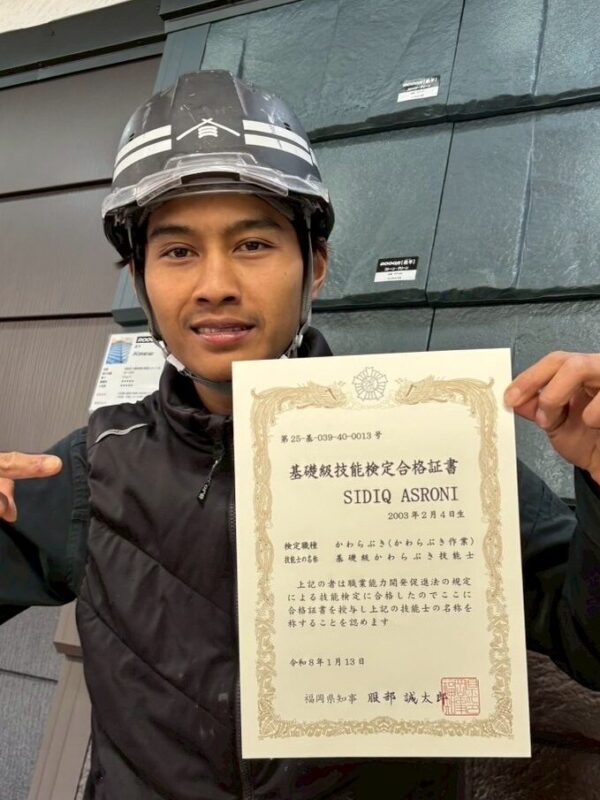 第25-基-039-40-0013号
基礎級技能検定合格証書
SIDIQ ASRONI
2003年2月4日生
検定職種 かわらぶき(かわらぶき作業)
技能士の名称 基礎級かわらぶき技能士
上記の者は職業能力開発促進法の規定
による技能検定に合格したのでここに
合格証書を授与し上記の技能士の名称を
称することを認めます
令和8年1月13日
福岡県知事 服部誠太郎